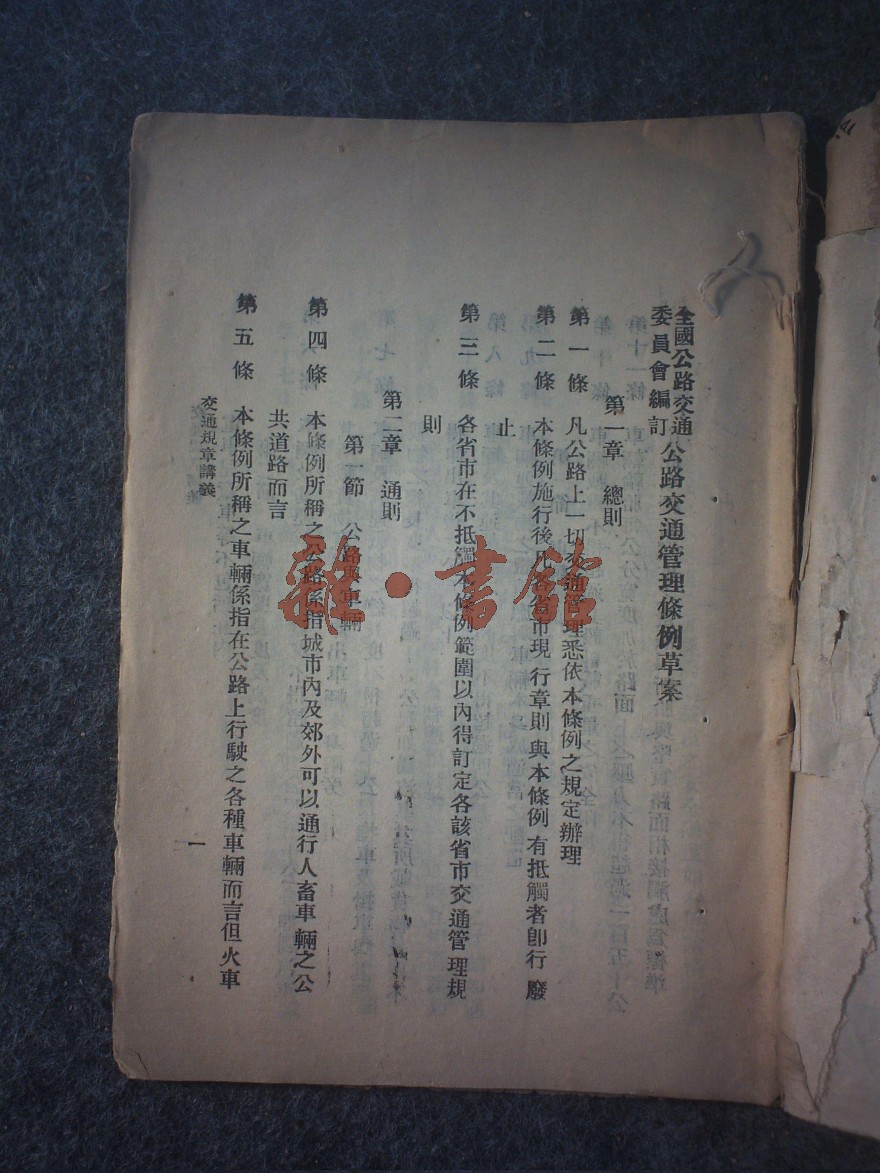 全國公路交通
委員會編訂
公路交通管理條例草案
第一章 總則
第一條 凡公路上一切交通管理悉依本條例之規定辦理
第二條 本條例施行後凡各省市現行章則與本條例有抵觸者卽行廢
止
第三條 各省市在不抵觸本條例範圍以內得訂定各該省市交通管理規
則
第二章 通則
第一節 公路與車輛
第四條 本條例所稱之公路係指城市內及郊外可以通行人畜車輛之公
共道路而言
第五條 本條例所稱之車輛係指在公路上行駛之各種車輛而言但火車
交通規章講義
一
雜·書館